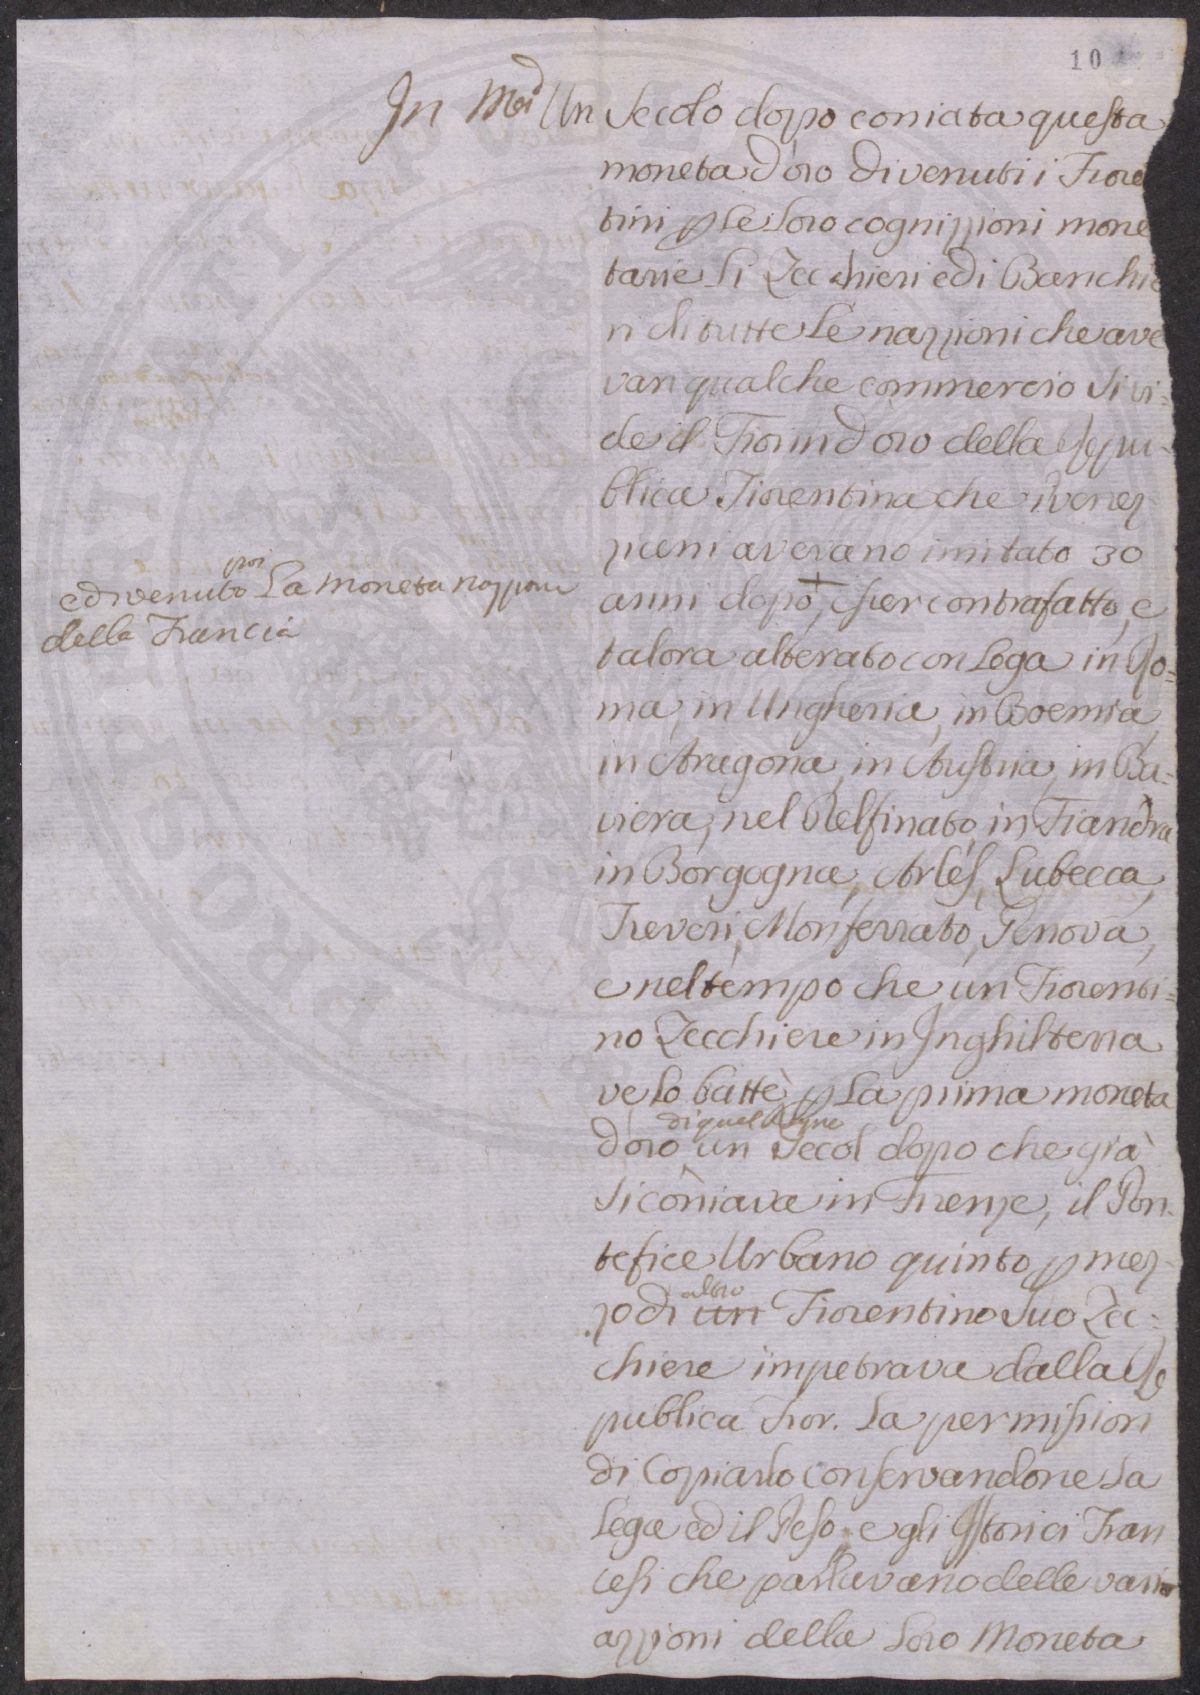 10
In Mod Un Secolo dopo coniata questa
moneta d'oro divenuti i Fiore
tini p le loro cognizzioni mone
tarie li Zecchieri ed i Banchie
ri di tutte le nazzioni che ave
van qualche commercio si vi-
de il Fiorin d'oro della Repu-
blica Fiorentina che i Venez
ziani avevano imitato 30
anni dopo, + esser contrafatto, e
poi
ed divenuto la moneta nazzione
della Francia
talora alterato con lega in Ro=
ma, in Ungheria, in Boemia,
in Aragona, in Austria, in Ba-
viera, nel Delfinato, in Fiandra
in Borgogna, Arles, Lubecca,
Treveri, Monferrato, Genova,
e nel tempo che un Fiorenti=
no Zecchiere in Inghilterra
ve lo battè p la prima moneta
di quel Regno
d'oro un Secol dopo che già
si coniava in Firenze, il Pon-
tefice Urbano quinto p mez-
altro
zo di un Fiorentino suo Zec-
chiere impetrava dalla Re
publica Fior. la permission
di Copiarlo conservandone la
lega ed il Peso: e gli Istorici Fran
cesi che parlavano delle vari
azzioni della loro Moneta